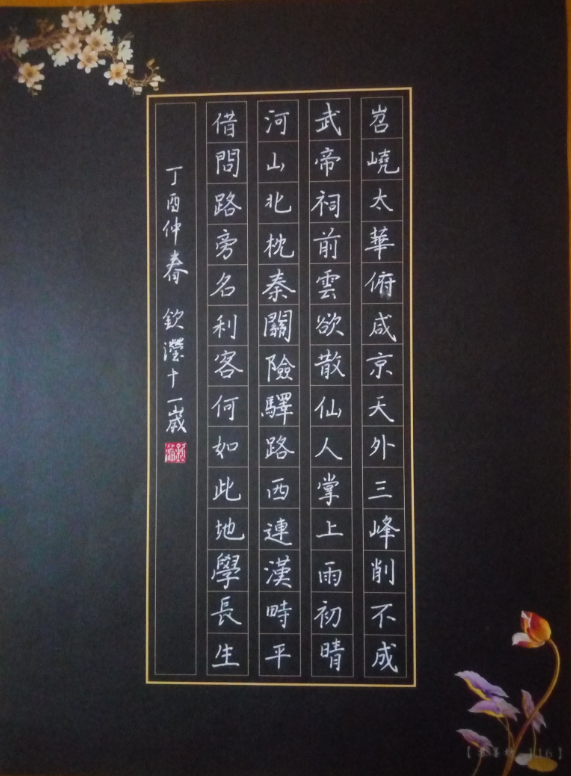 岧嶢太華俯咸京天外三峰削不成
武帝祠前雲欲散仙人掌上雨初晴
河山北枕秦關險驛路西連漢畤平
借問路旁名利客何如此地學長生
丁酉仲春 欽瀅十一歲